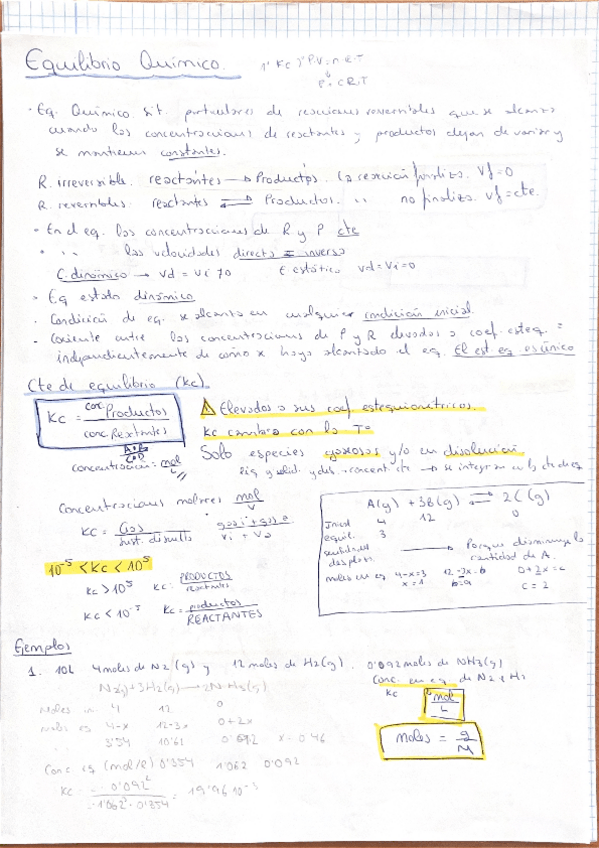 Equilibrio Químico. 1º Kc ) P.V = n R.T
P = c R.T
· Eq. Químico sit. particulares de reacciones reversibles que se alcanza
cuando las concentraciones de reactantes y productos dejan de variar y
se mantienen constantes.
R. irreversibles. reactantes → Productos. La reacción finaliza. Vf = 0
R. reversibles. reactantes ⇌ Productos. " no finaliza. Vf = cte.
· En el eq. las concentraciones de R y P cte
· " las velocidades directa = inversa
E. dinámico → Vd = Vi ≠ 0 E. estático Vd = Vi = 0
· Eq estado dinámico
· Condición de eq. se alcanza en cualquier condición inicial.
· Cociente entre las concentraciones de P y R elevados a coef. esteq. =
independientemente de cómo se haya alcanzado el eq. El est. eq. es único
Cte de equilibrio (Kc)
Kc = conc. Productos / conc. Reactantes
⚠ Elevados a sus coef. estequiométricos.
Kc cambia con la Tª
Solo especies gaseosas y/o en disolución
A·B / C·D
concentración: mol / L
liq y solid. y dis. → se integran en la cte de eq
Concentraciones molares mol / V
Kc = Gas / sust. disuelta
A(g) + 3B(g) ⇌ 2C(g)
Inicial 4 12 0
equil. 3
sentido del desplaz. → Porque disminuye la cantidad de A.
moles en eq 4-x=3 12-3x=b 0+2x=c
x=1 b=9 c=2
10⁻⁵ < Kc < 10⁵
Kc > 10⁵ Kc: PRODUCTOS / reactantes
Kc < 10⁻⁵ Kc = productos / REACTANTES
Ejemplos
1. 10L 4 moles de N2 (g) y 12 moles de H2(g). 0'092 moles de NH3(g)
Conc. en eq. de N2 e H2
N2(g)+3H2(g) → 2NH3(g)
Kc mol / L
Moles in. 4 12 0
moles eq 4-x 12-3x 0+2x
3'54 10'62 0'92 x = 0'46
moles = g / M
Conc eq (mol/L) 0'354 1'062 0'092
Kc = 0'092² / 1'062³ · 0'354 = 19'96·10⁻³